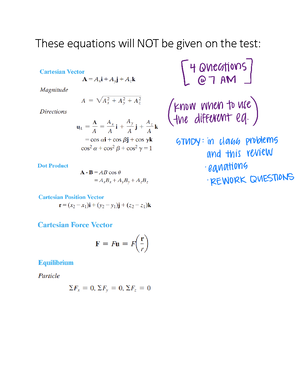 These equations will NOT be given on the test:
Cartesian Vector
A = Aₓi + Aᵧj + A_zk
Magnitude
A = √(Aₓ² + Aᵧ² + A_z²)
Directions
u_A = A/A = Aₓ/A i + Aᵧ/A j + A_z/A k
= cos αi + cos βj + cos γk
cos² α + cos² β + cos² γ = 1
Dot Product
A · B = AB cos θ
= AₓBₓ + AᵧBᵧ + A_zB_z
Cartesian Position Vector
r = (x₂ − x₁)i + (y₂ − y₁)j + (z₂ − z₁)k
Cartesian Force Vector
F = Fu = F(r/r)
Equilibrium
Particle
ΣFₓ = 0, ΣFᵧ = 0, ΣF_z = 0
4 QUESTIONS
@ 7 AM
(know when to use
the different eq.)
STUDY: in class problems
and this review
· equations
· REWORK QUESTIONS